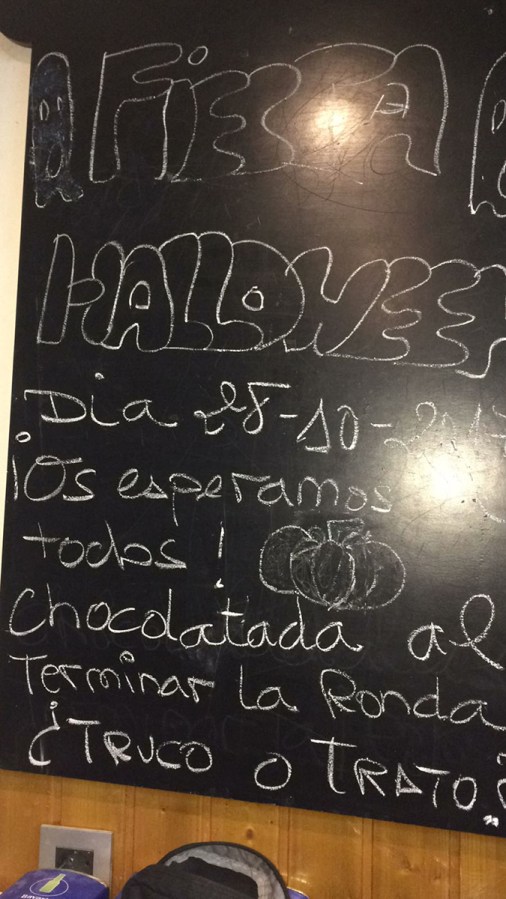 ¡FIESTA
HALLOWEE
Dia 28-10-201
¡Os esperamos
todos!
Chocolatada al
Terminar la Ronda
¿TRUCO O TRATO?